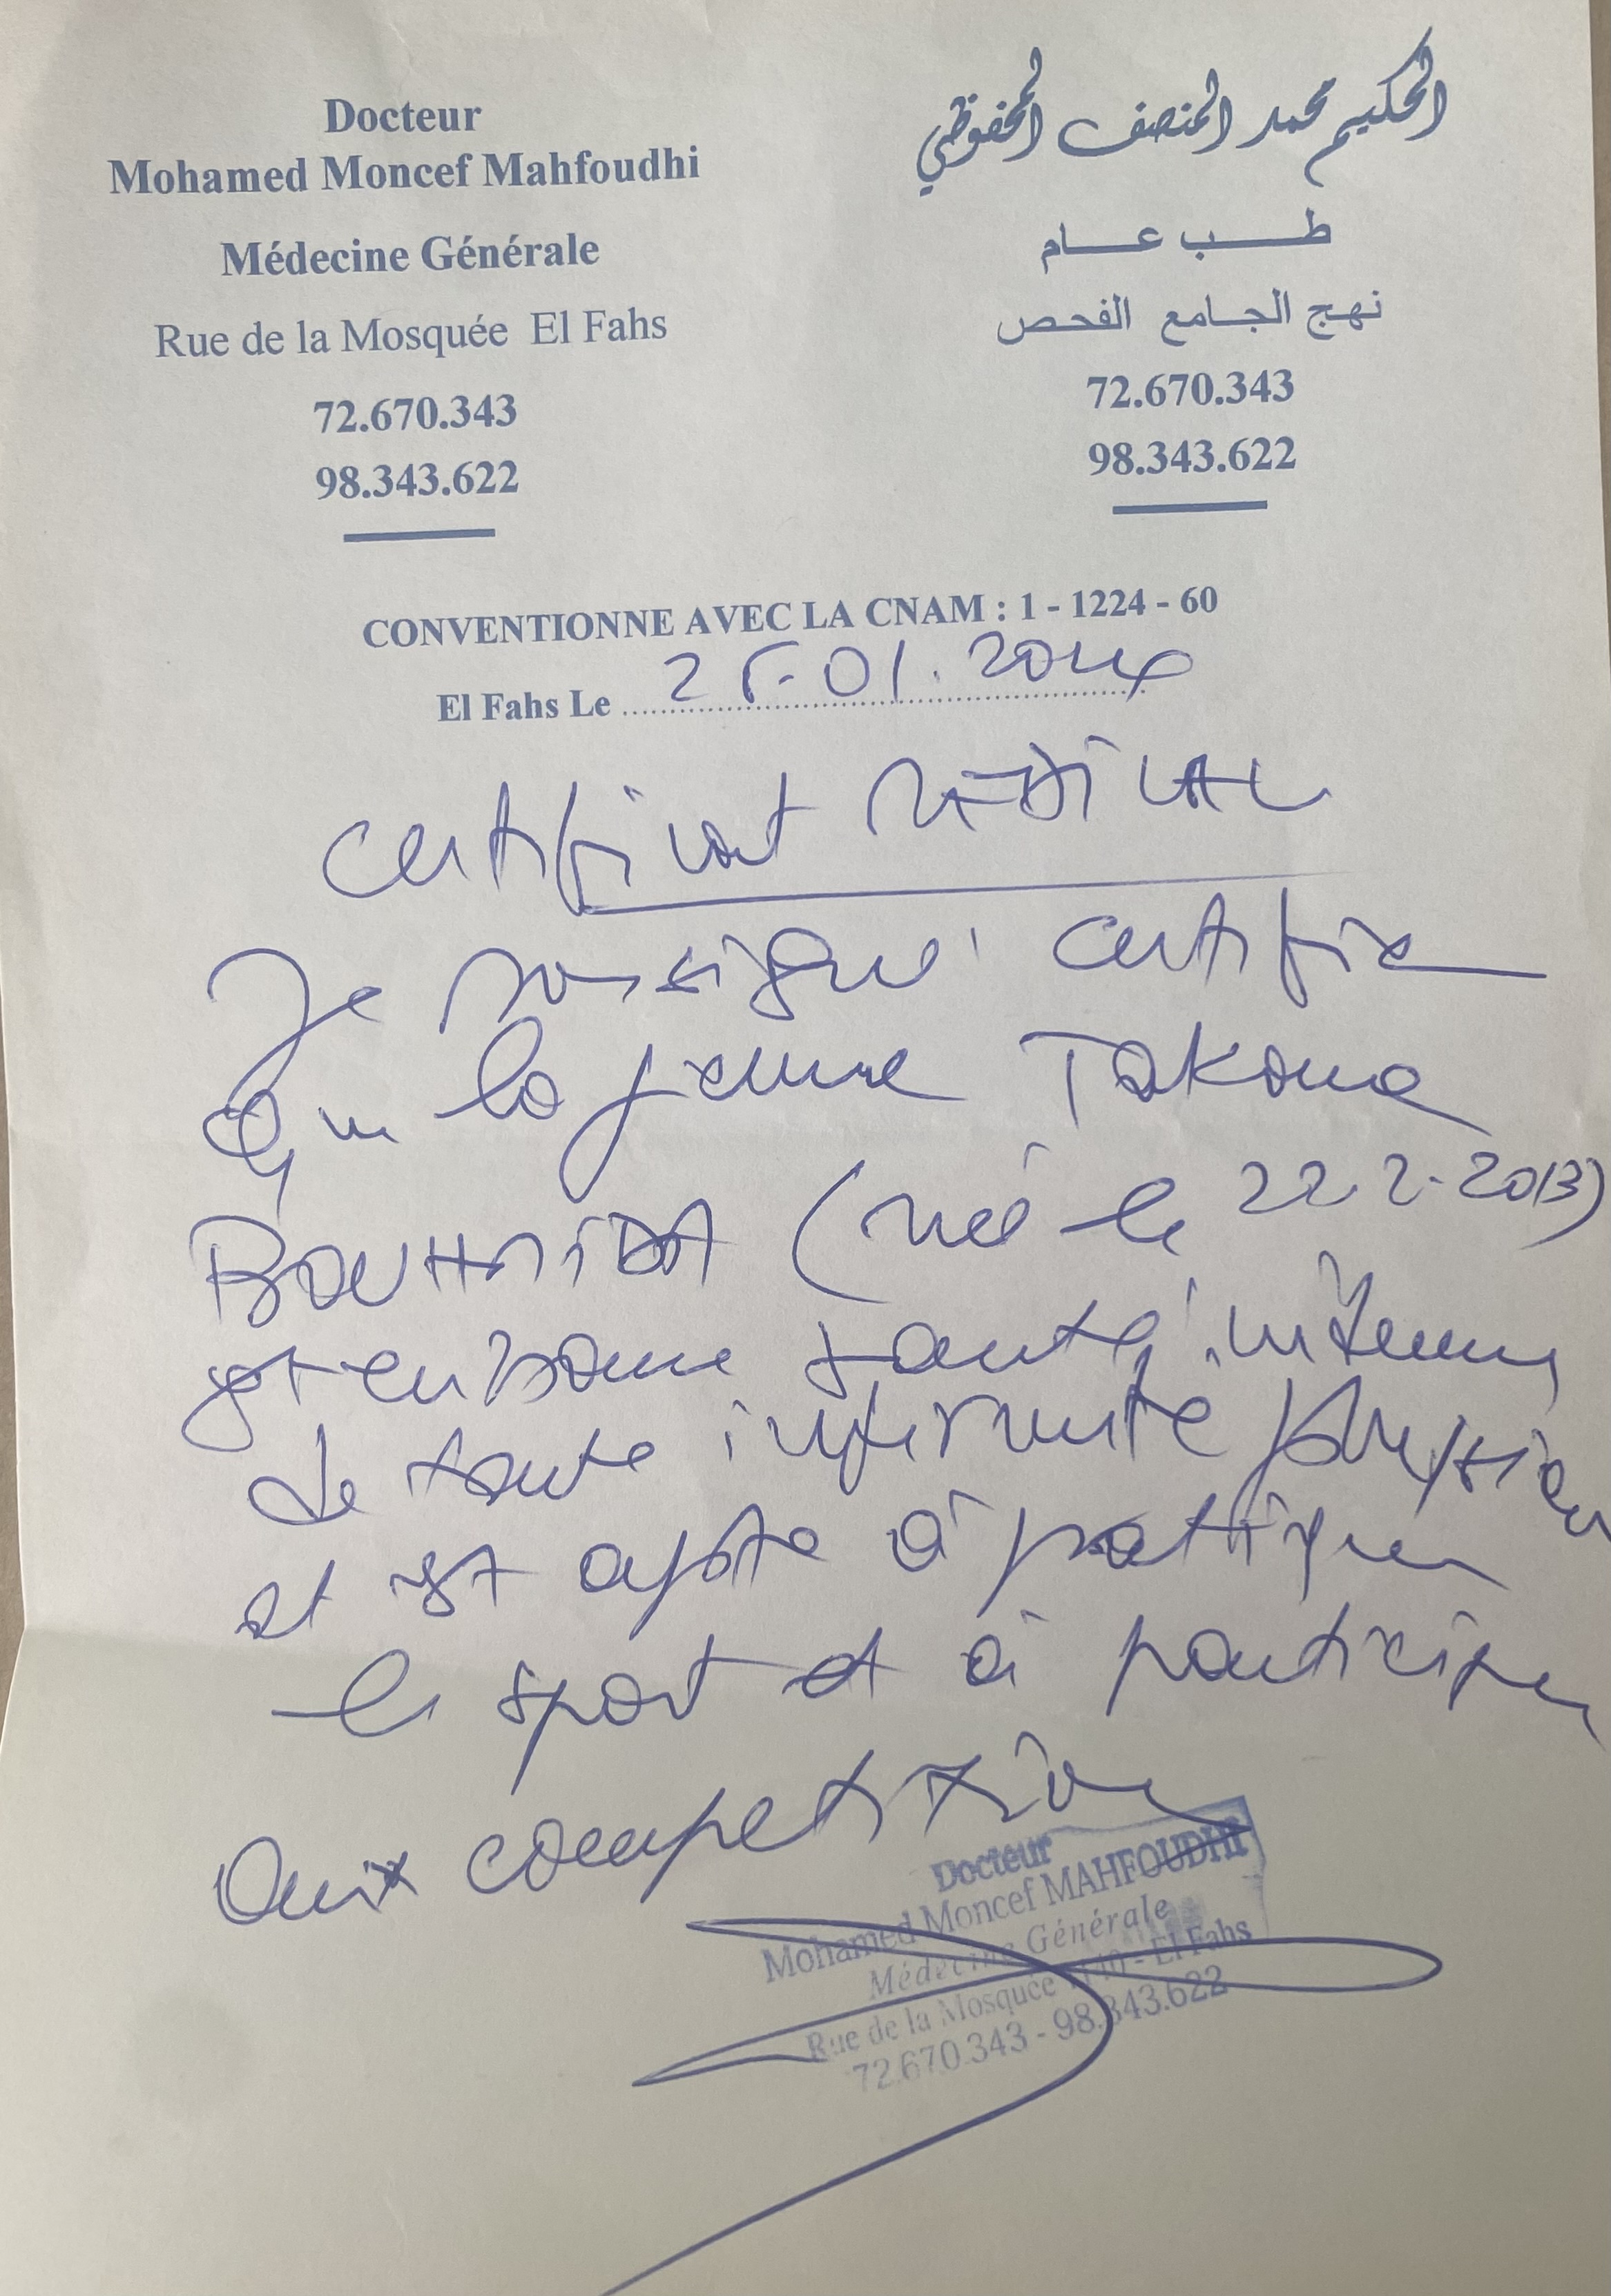 Docteur
Mohamed Moncef Mahfoudhi
Médecine Générale
Rue de la Mosquée El Fahs
72.670.343
98.343.622
الحكيم محمد المنصف المحفوظي
طب عام
نهج الجامع الفحص
72.670.343
98.343.622
CONVENTIONNE AVEC LA CNAM : 1 - 1224 - 60
El Fahs Le 25-01.
Certificat MEDICAL
Je soussigné certifie
que la jeune Takoua
BOUHMIDA (née le 22.2.2013)
est en bonne santé, indemne
de toute infirmité physique
et est apte à pratiquer
le sport et à participer
aux competition
Docteur
Mohamed Moncef MAHFOUDHI
Médecine Générale
Rue de la Mosquée - El Fahs
72.670.343 - 98.343.622